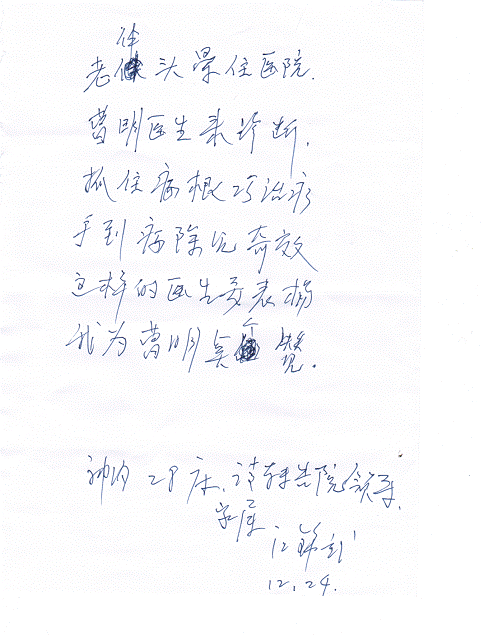 老伴头晕住医院.
曹明医生来诊断.
抓住病根巧治疗
手到病除见奇效
这样的医生要表扬
我为曹明点个赞.
神内 28床. 请转告院领导.
家属
江锦
12.24.